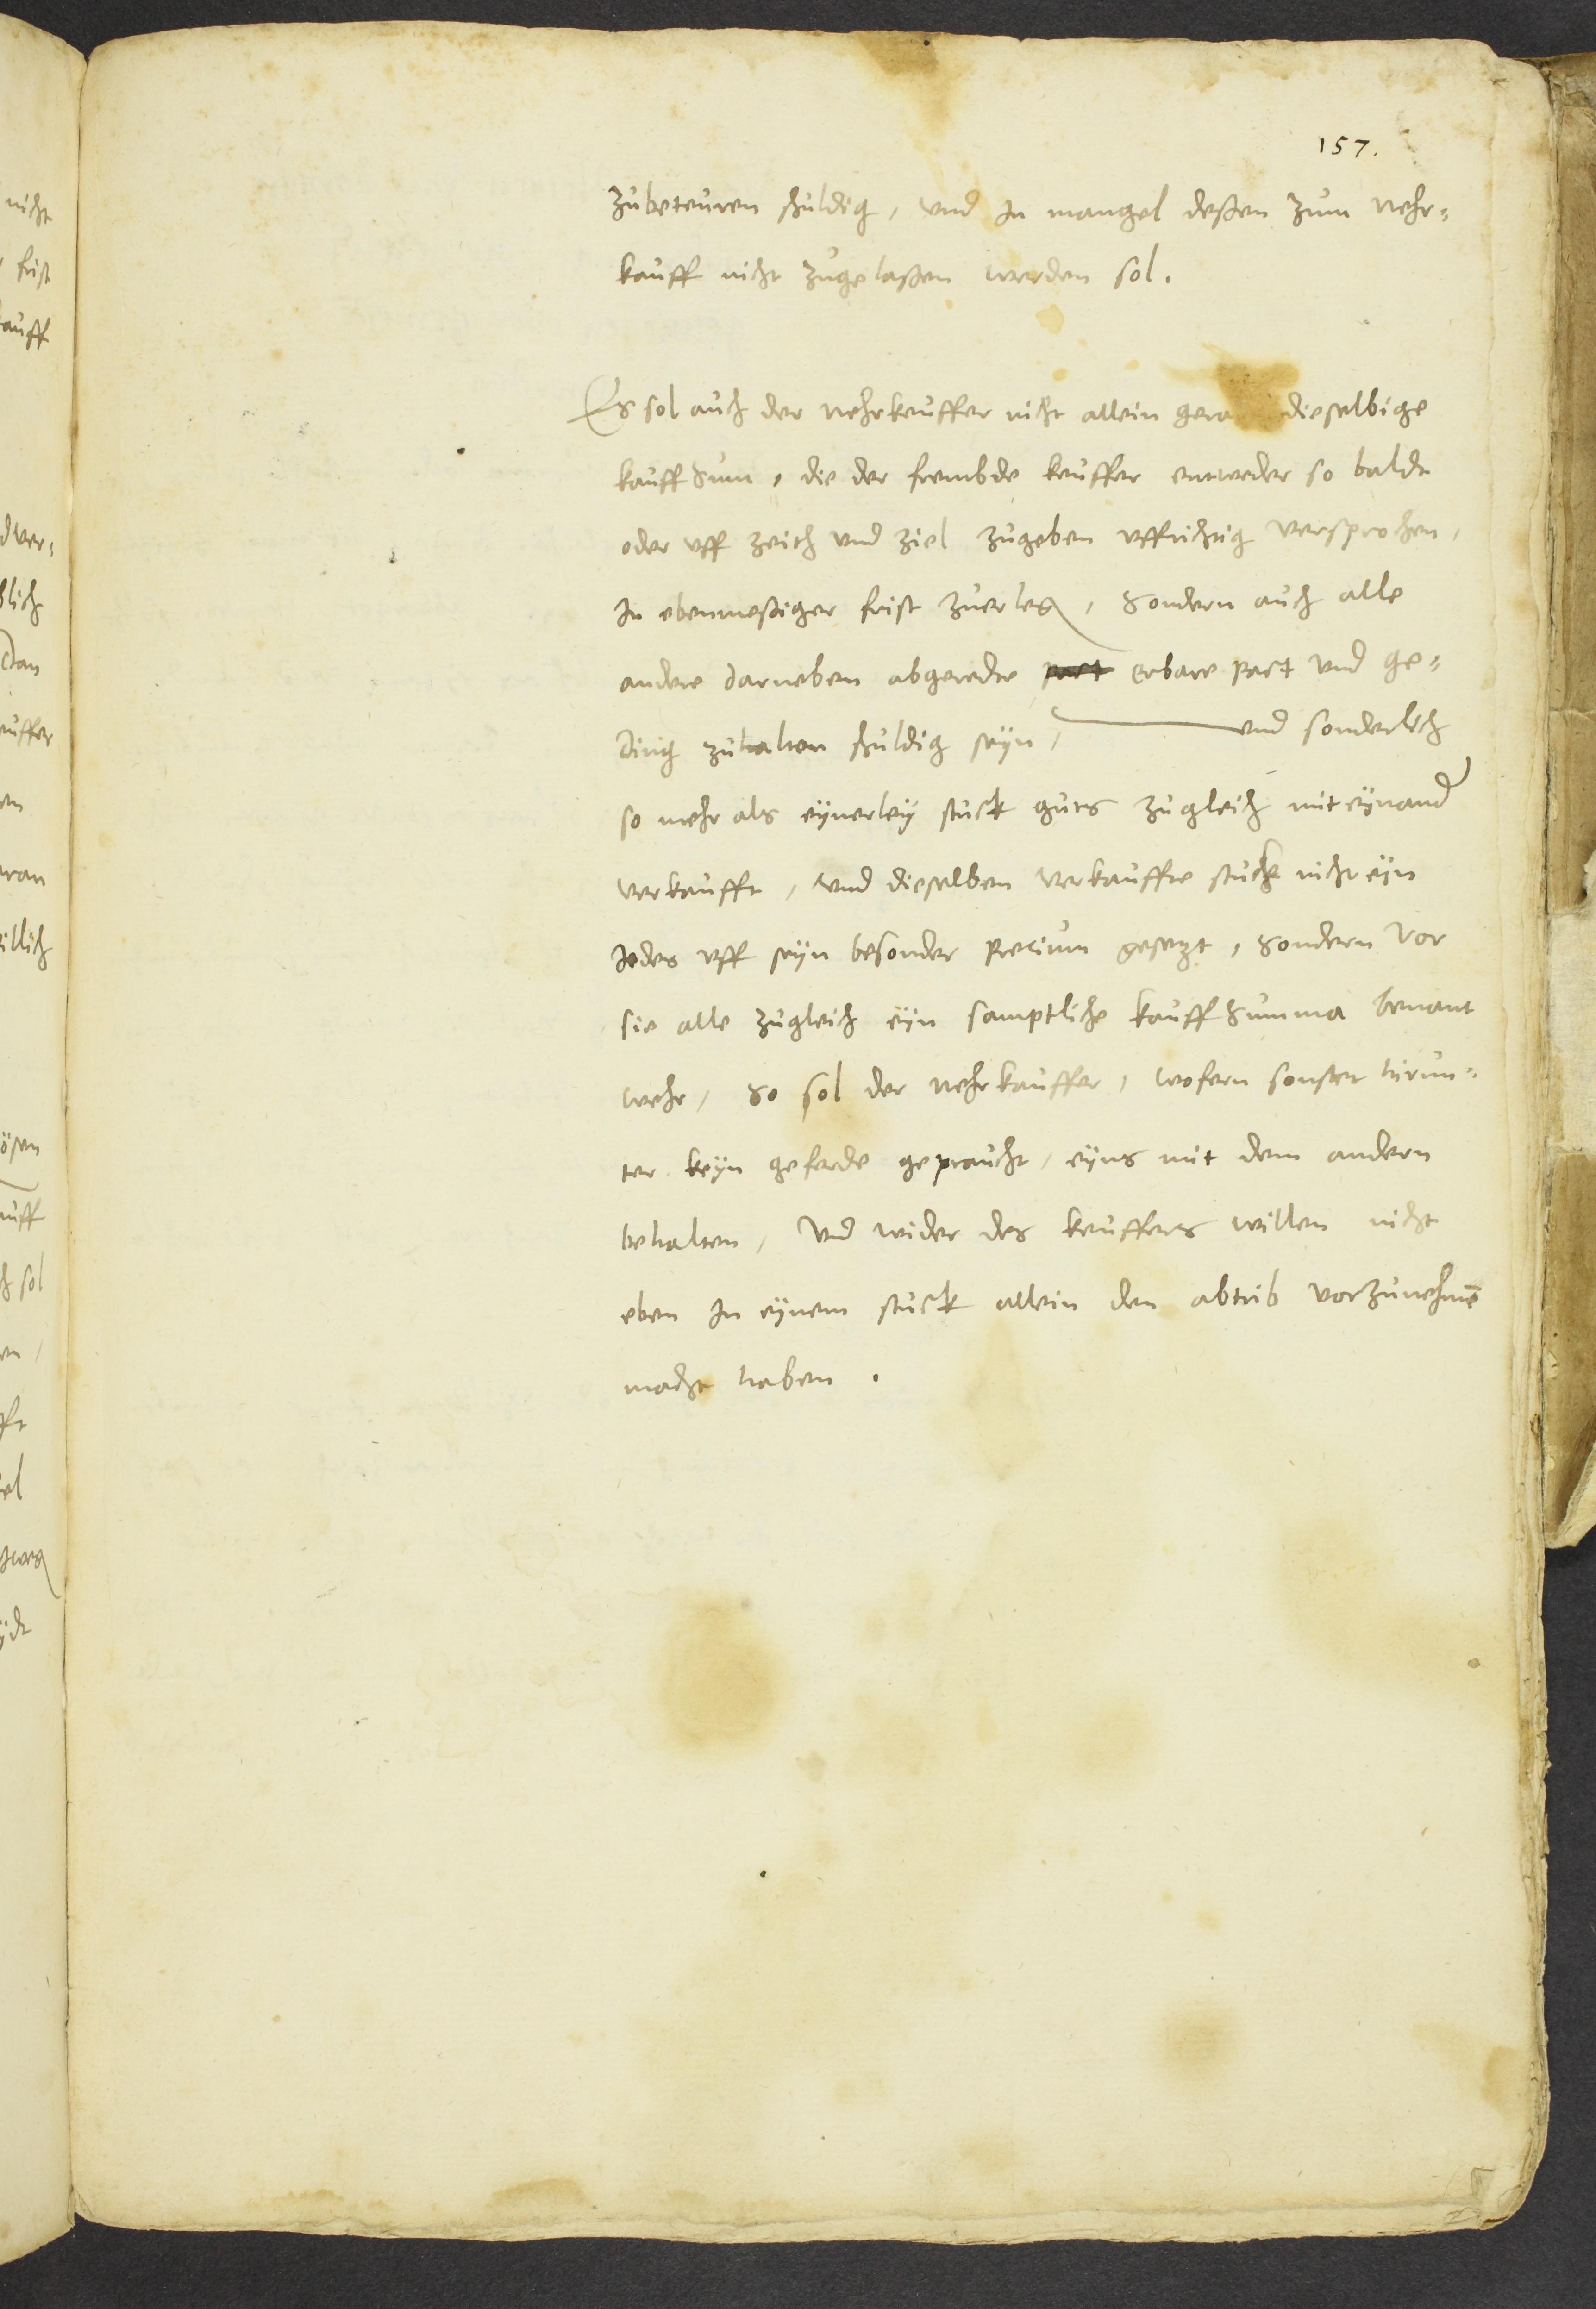 157.
zubeteuren schuldig, vnd in mangel deßen zum nehr-
kauff nicht zugelaßen werden sol.
Es sol auch der nehrkeuffer nicht allein dieselbige
kauffsum, die der frembde keuffer entweder so baldt
oder vff zeith vnd ziel zugeben vffrichtig versprochen,
In ebenmeßiger frist zuerleg, sondern auch alle
andere darneben abgeredte pact erbare pact vnd ge-
ding zuhalten schuldig seyn, vnd sonderlich
so mehr als eynerley stuck guts zugleich mit eynand
verkaufft, vnd dieselben verkauffte stuck nicht eyn
Jedes vff seyn besonder precium gesetzt, sondern vor
sie alle zugleich eyn samptliche kauffsumma benant
wehr, so sol der nehrkauffer, wofern sonsten hirun-
ter keyn geferde gepraucht, eyns mit dem andern
behalten, vnd wider des keuffers willen nicht
eben in eynem stuck allein den abtrib vorzunehme
macht haben.
nicht
frist
auff
dver-
lich
dan
euffer
en
ran
illich
ösen
auff
sol
en,
fft
el